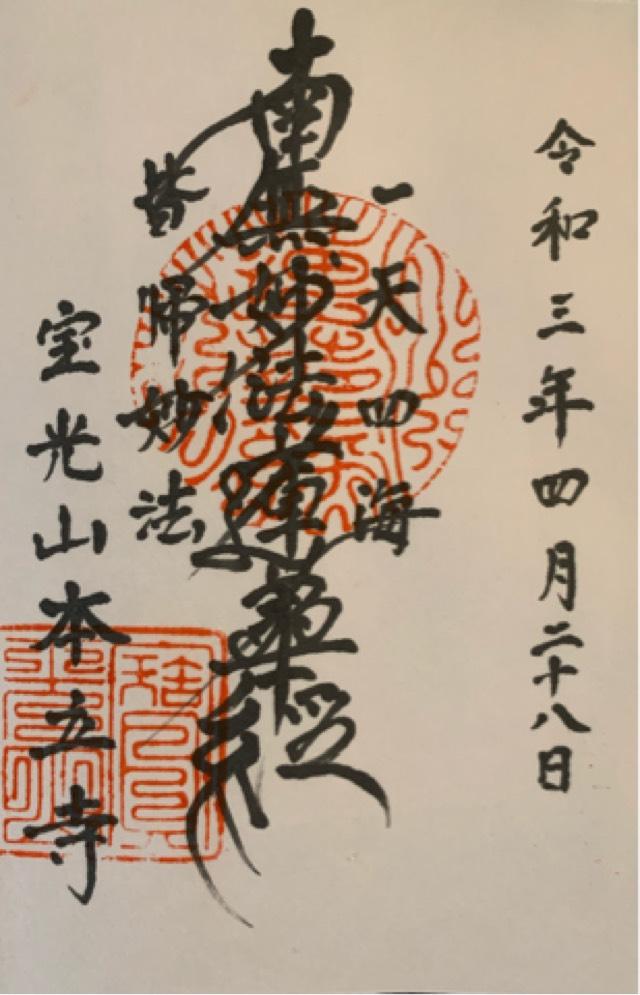 令和三年四月二十八日
一天四海
南無妙法蓮華経
皆帰妙法
宝光山本立寺